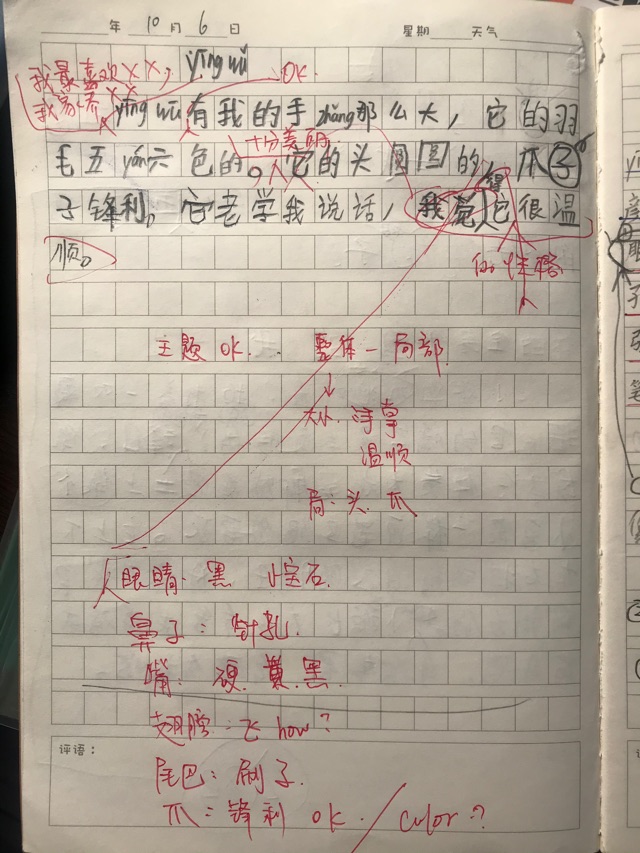 年 10 月 6 日 星期 天气
yīng wǔ OK
我最喜欢XX,
我家养XX
yīng wǔ 有我的手 zhǎng 那么大，它的羽
十分美丽
毛五 yán 六色的。它的头圆圆的，爪子
得
子锋利。它老学我说话，我觉它很温
顺。
的性格
主题 OK. 整体－局部
↓
大小. 手掌
温顺
局：头. 爪
眼睛. 黑 小宝石.
鼻子：针孔.
嘴：硬. 黄. 黑.
翅膀：飞 how?
评语：
尾巴：刷子.
爪：锋利 OK. / color?